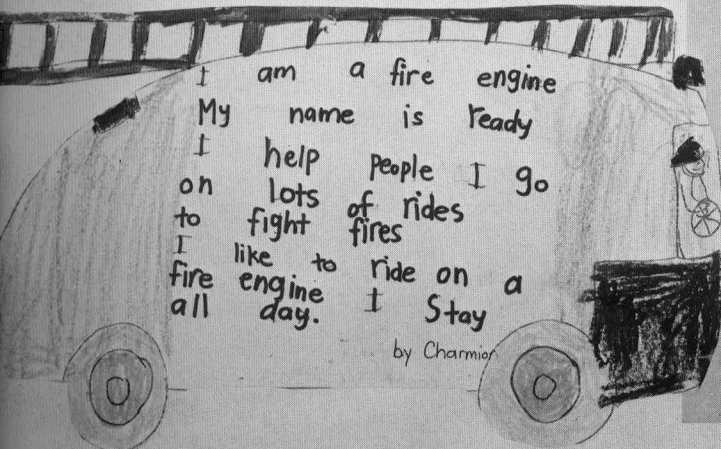 I am a fire engine
My name is ready
I help people I go
on lots of rides
to fight fires
I like to ride on a
fire engine
all day. I Stay
by Charmion